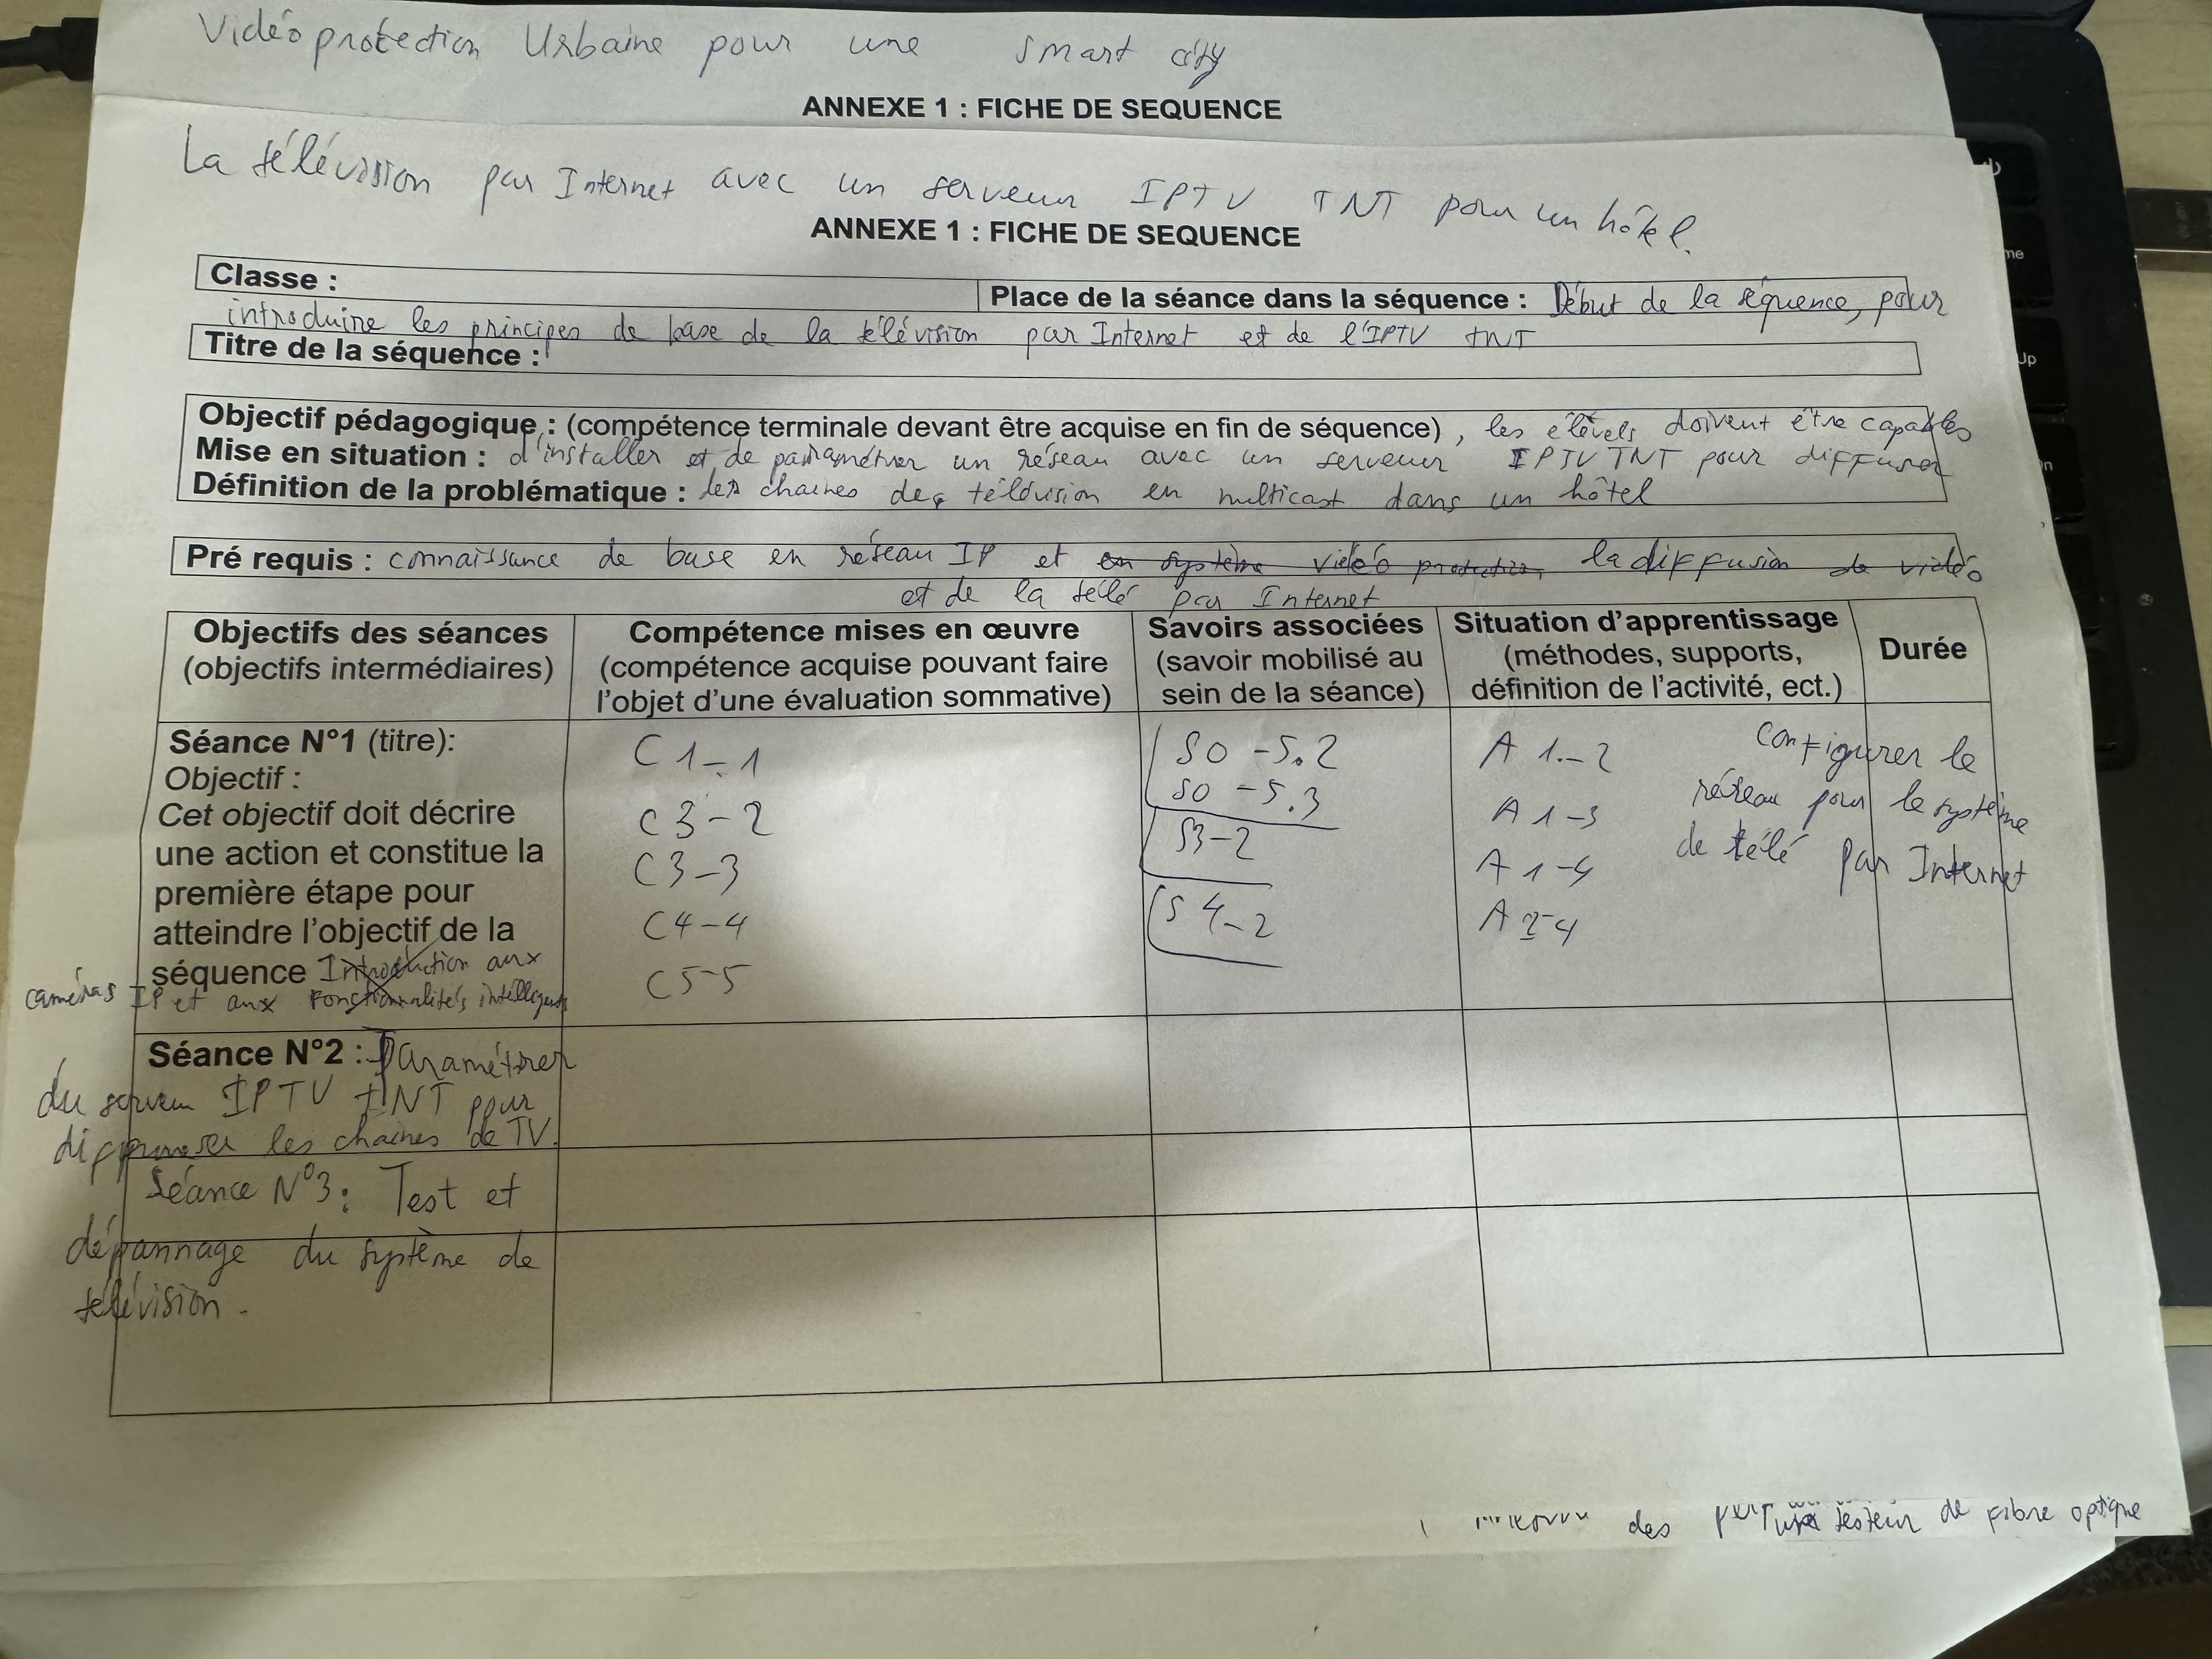 Vidéoprotection Urbaine pour une smart city
ANNEXE 1 : FICHE DE SEQUENCE
La télévision par Internet avec un serveur IPTV TNT pour un hôtel.
ANNEXE 1 : FICHE DE SEQUENCE
Classe :
Place de la séance dans la séquence : Début de la séquence, pour
introduire les principes de base de la télévision par Internet et de l'IPTV TNT
Titre de la séquence :
Objectif pédagogique : (compétence terminale devant être acquise en fin de séquence), les élèvels doivent être capables
Mise en situation : d'installer et de paramétrer un réseau avec un serveur IPTV TNT pour diffuser
Définition de la problématique : les chaines de télévision en multicast dans un hôtel
Pré requis : connaissance de base en réseau IP et en système vidéo protection, la diffusion de vidéo
et de la télé par Internet
Objectifs des séances
(objectifs intermédiaires)
Compétence mises en œuvre
(compétence acquise pouvant faire
l'objet d'une évaluation sommative)
Savoirs associées
(savoir mobilisé au
sein de la séance)
Situation d'apprentissage
(méthodes, supports,
définition de l'activité, ect.)
Durée
Séance N°1 (titre):
Objectif :
Cet objectif doit décrire
une action et constitue la
première étape pour
atteindre l'objectif de la
séquence Introduction aux
caméras IP et aux fonctionnalités intelligents
C1-1
C3-2
C3-3
C4-4
C5-5
S0-5.2
S0-5.3
S3-2
S4-2
A 1-2
A 1-3
A 1-4
A 2-4
Configurer le
réseau pour le système
de télé par Internet
Séance N°2 : Paramétrer
du serveur IPTV TNT pour
diffuser les chaines de TV.
Séance N°3: Test et
dépannage du système de
télévision.
des
testeur de fibre optique